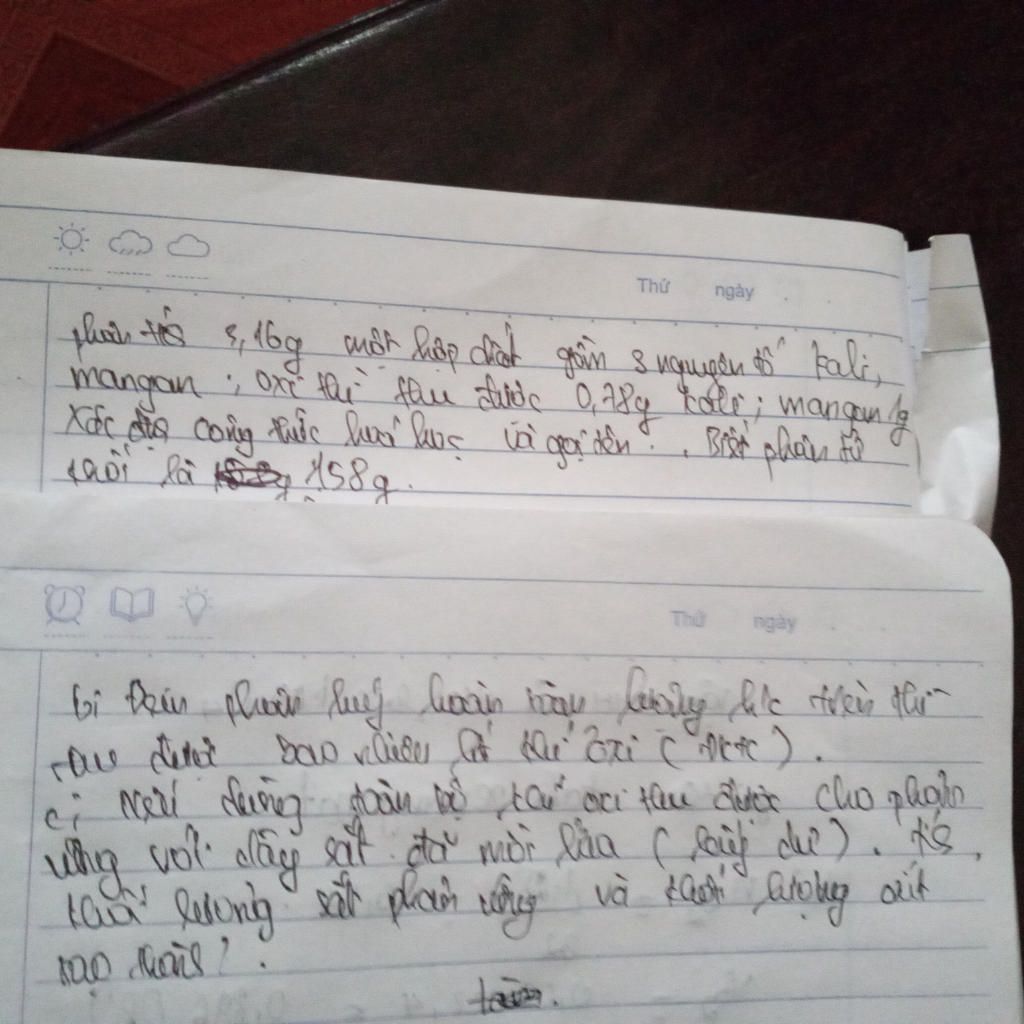 Thứ ngày
phân tích 3,16g một hợp chất gồm 3 nguyên tố kali,
mangan; oxi thì thu được 0,78g kali; mangan 1g
Xác công thức hoá học và gọi tên. Biết phân tử
khối là 158g.
Thứ ngày
phân huỷ hoàn toàn lượng h/c trên thì
thu được bao nhiêu lít khí Oxi (đktc).
c; Nếu dùng toàn bộ khí oxi thu được cho phản
ứng với dây sắt đã mồi lửa (lấy dư). Tính
khối lượng sắt phản ứng và khối lượng oxit
tạo thành?